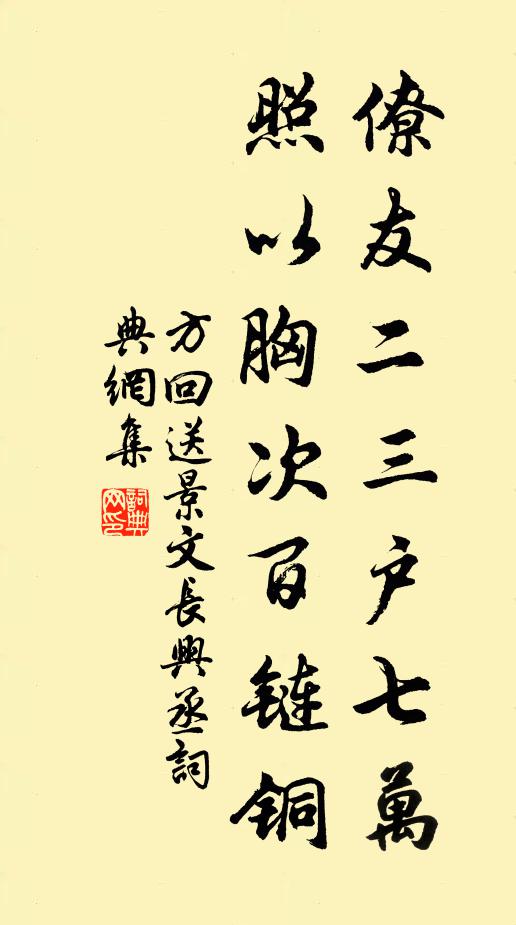 僚友二三户七萬
照以胸次百鏈铜
方回送景文長興丞詞
典網集
詞典网印